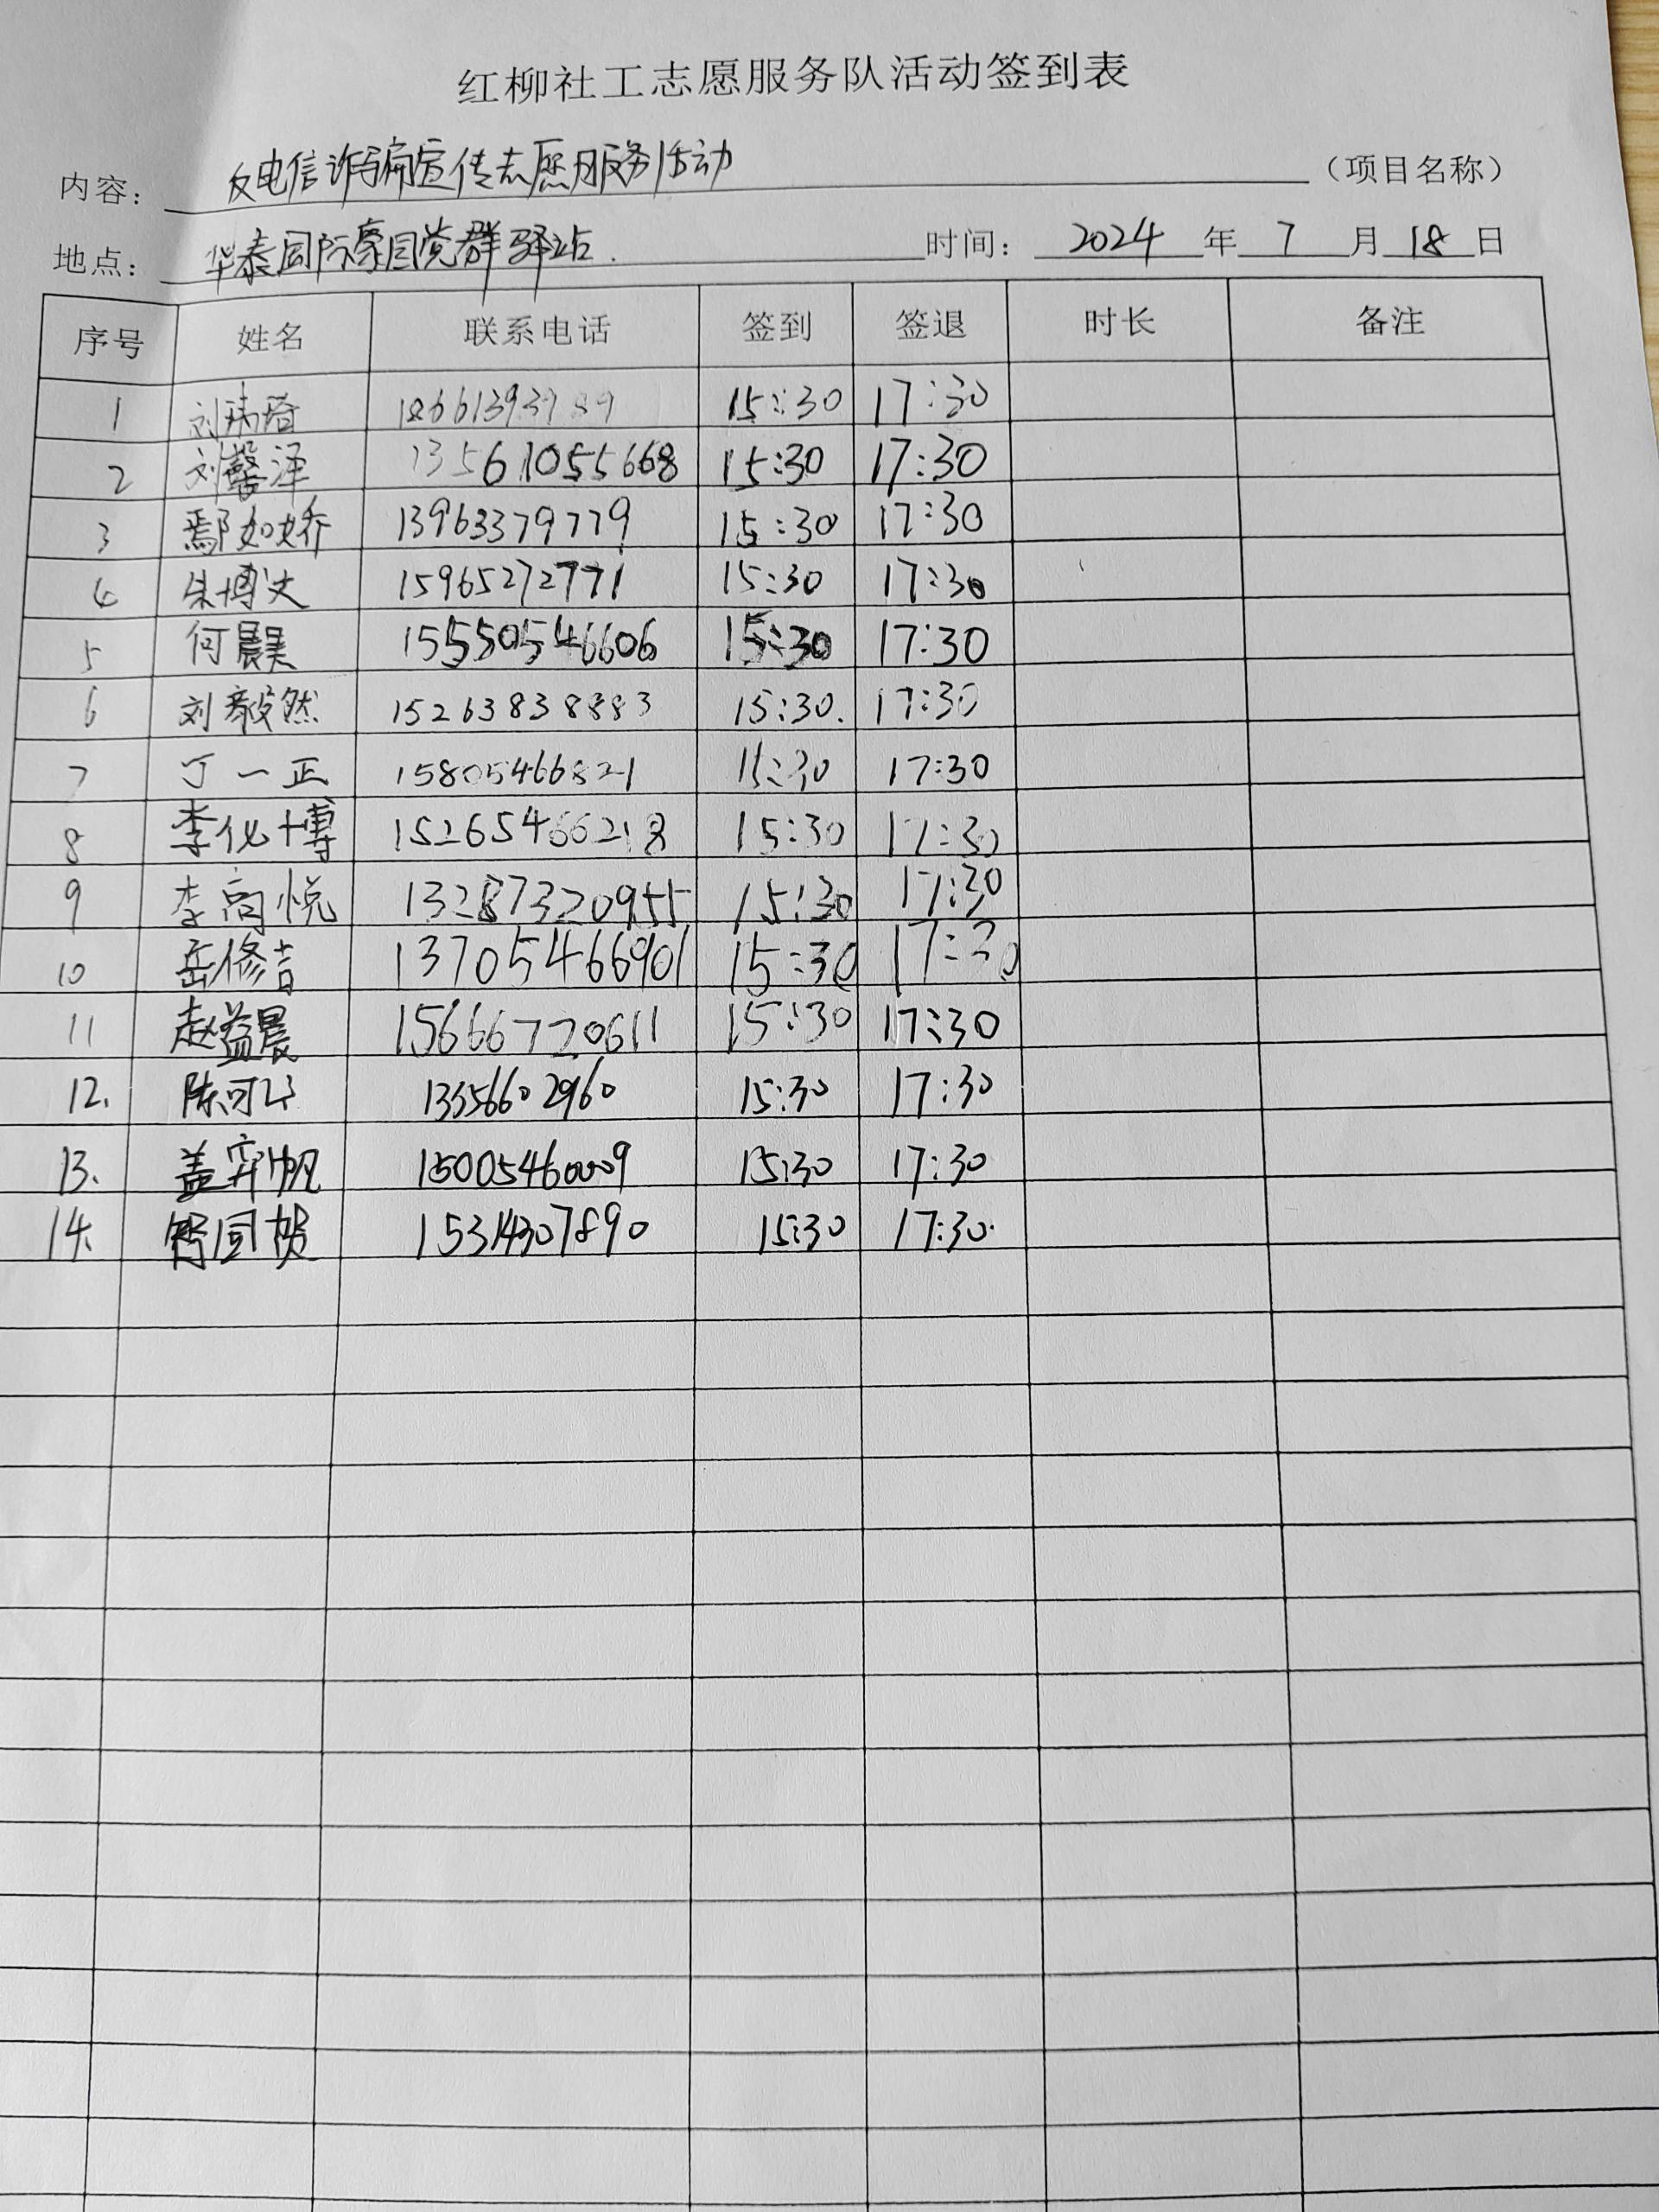 红柳社工志愿服务队活动签到表
内容: 反电信诈骗宣传志愿服务活动 (项目名称)
地点: 华泰国际豪园党群驿站. 时间: 2024 年 7 月 18 日
序号 姓名 联系电话 签到 签退 时长 备注
1 刘 15:30 17:30
2 刘馨泽 13561055668 15:30 17:30
3 鄢如娇 13963379779 15:30 17:30
4 朱博文 15965272771 15:30 17:30
5 何晨昊 15550546606 15:30 17:30
6 刘毅然 15263838883 15:30. 17:30
7 丁一正 15805466821 15:30 17:30
8 李化博 15265466218 15:30 17:30
9 李高悦 13287320955 15:30 17:30
10 岳修吉 13705466901 15:30 17:30
11 赵益晨 15666720611 15:30 17:30
12. 陈可 13356602960 15:30 17:30
13. 盖弈帆 15005460009 15:30 17:30
14. 15314307890 15:30 17:30.